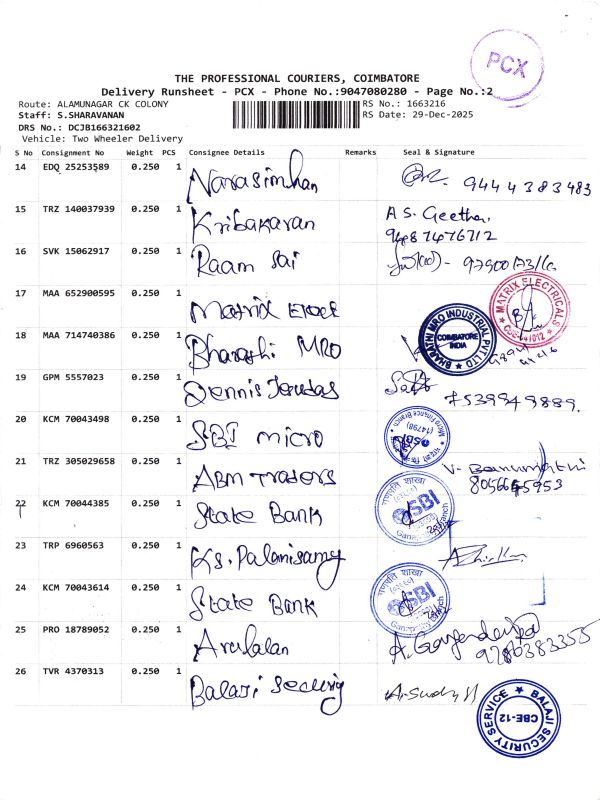 PCX
THE PROFESSIONAL COURIERS, COIMBATORE
Delivery Runsheet - PCX - Phone No.:9047080280 - Page No.:2
Route: ALAMUNAGAR CK COLONY
RS No.: 1663216
Staff: S.SHARAVANAN
RS Date: 29-Dec-2025
DRS No.: DCJB166321602
Vehicle: Two Wheeler Delivery
S No Consignment No Weight PCS Consignee Details Remarks Seal & Signature
14 EDQ 25253589 0.250 1 Narasimhan 9444383483
15 TRZ 140037939 0.250 1 Kribakaran A S. Geetha.
9487476712
16 SVK 15062917 0.250 1 Raam Sai
17 MAA 652900595 0.250 1 Matrix
MATRIX ELECTRICALS
CBE-641012
18 MAA 714740386 0.250 1 Bharathi MRO
BHARATHI MRO INDUSTRIAL PVT LTD
COIMBATORE
INDIA
19 GPM 5557023 0.250 1 Dennis Jesudas 7539949889.
20 KCM 70043498 0.250 1 SBI micro
Micro Finance Branch
(14798)
SBI
21 TRZ 305029658 0.250 1 ABM Traders V.
22 KCM 70044385 0.250 1 State Bank
गणपति शाखा
SBI
23 TRP 6960563 0.250 1 Ks. Palanisamy
24 KCM 70043614 0.250 1 State Bank
गणपति शाखा
SBI
25 PRO 18789052 0.250 1 Arulalan A.
26 TVR 4370313 0.250 1 Balaji Security
BALAJI SECURITY SERVICE
CBE-12